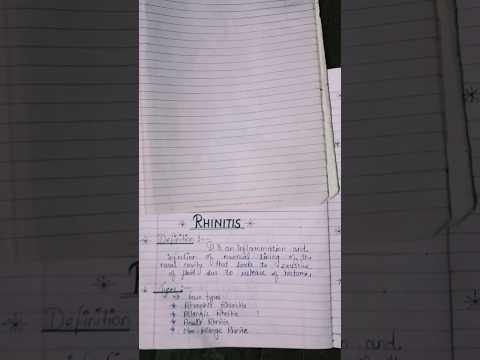 RHINITIS
Definition :-
It is an Inflammation and
Infection of mucosal lining of the
nasal cavity that leads to excessive
of fluid due to release of histamine
Types :-
four types
Atrophic Rhinitis
Allergic Rhinitis
Acute Rhinitis
Non allergic Rhinitis
Definition
and